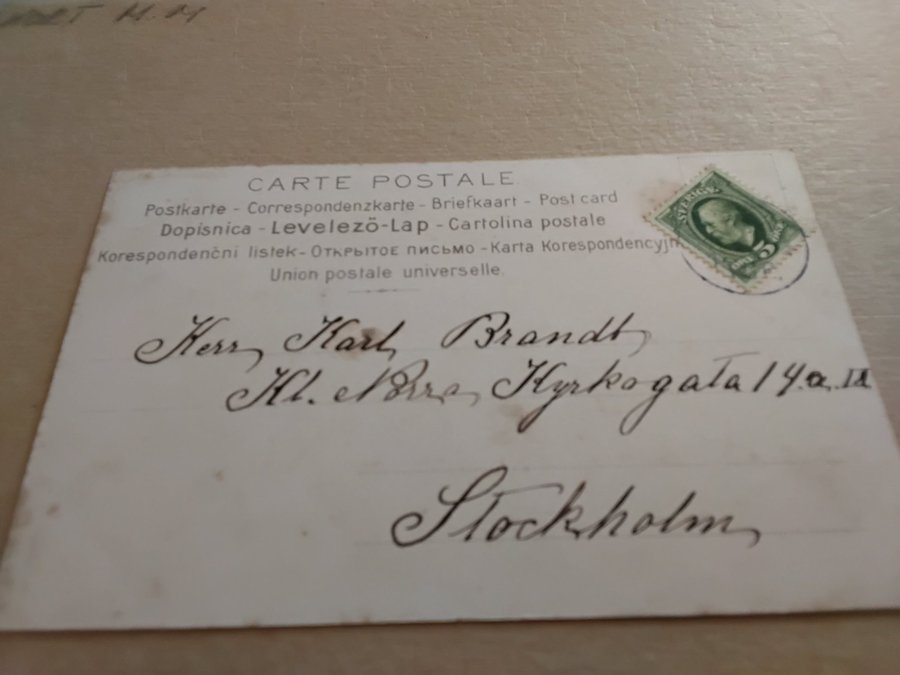 M.M
CARTE POSTALE
Postkarte - Correspondenzkarte - Briefkaart - Post card
Dopisnica - Levelezö-Lap - Cartolina postale
Korespondenční listek - Открытое письмо - Karta Korespondencyjn
Union postale universelle.
SVERIGE
5
Herr Karl Brandt
Kl. Norra Kyrkogata 14.a.
Stockholm